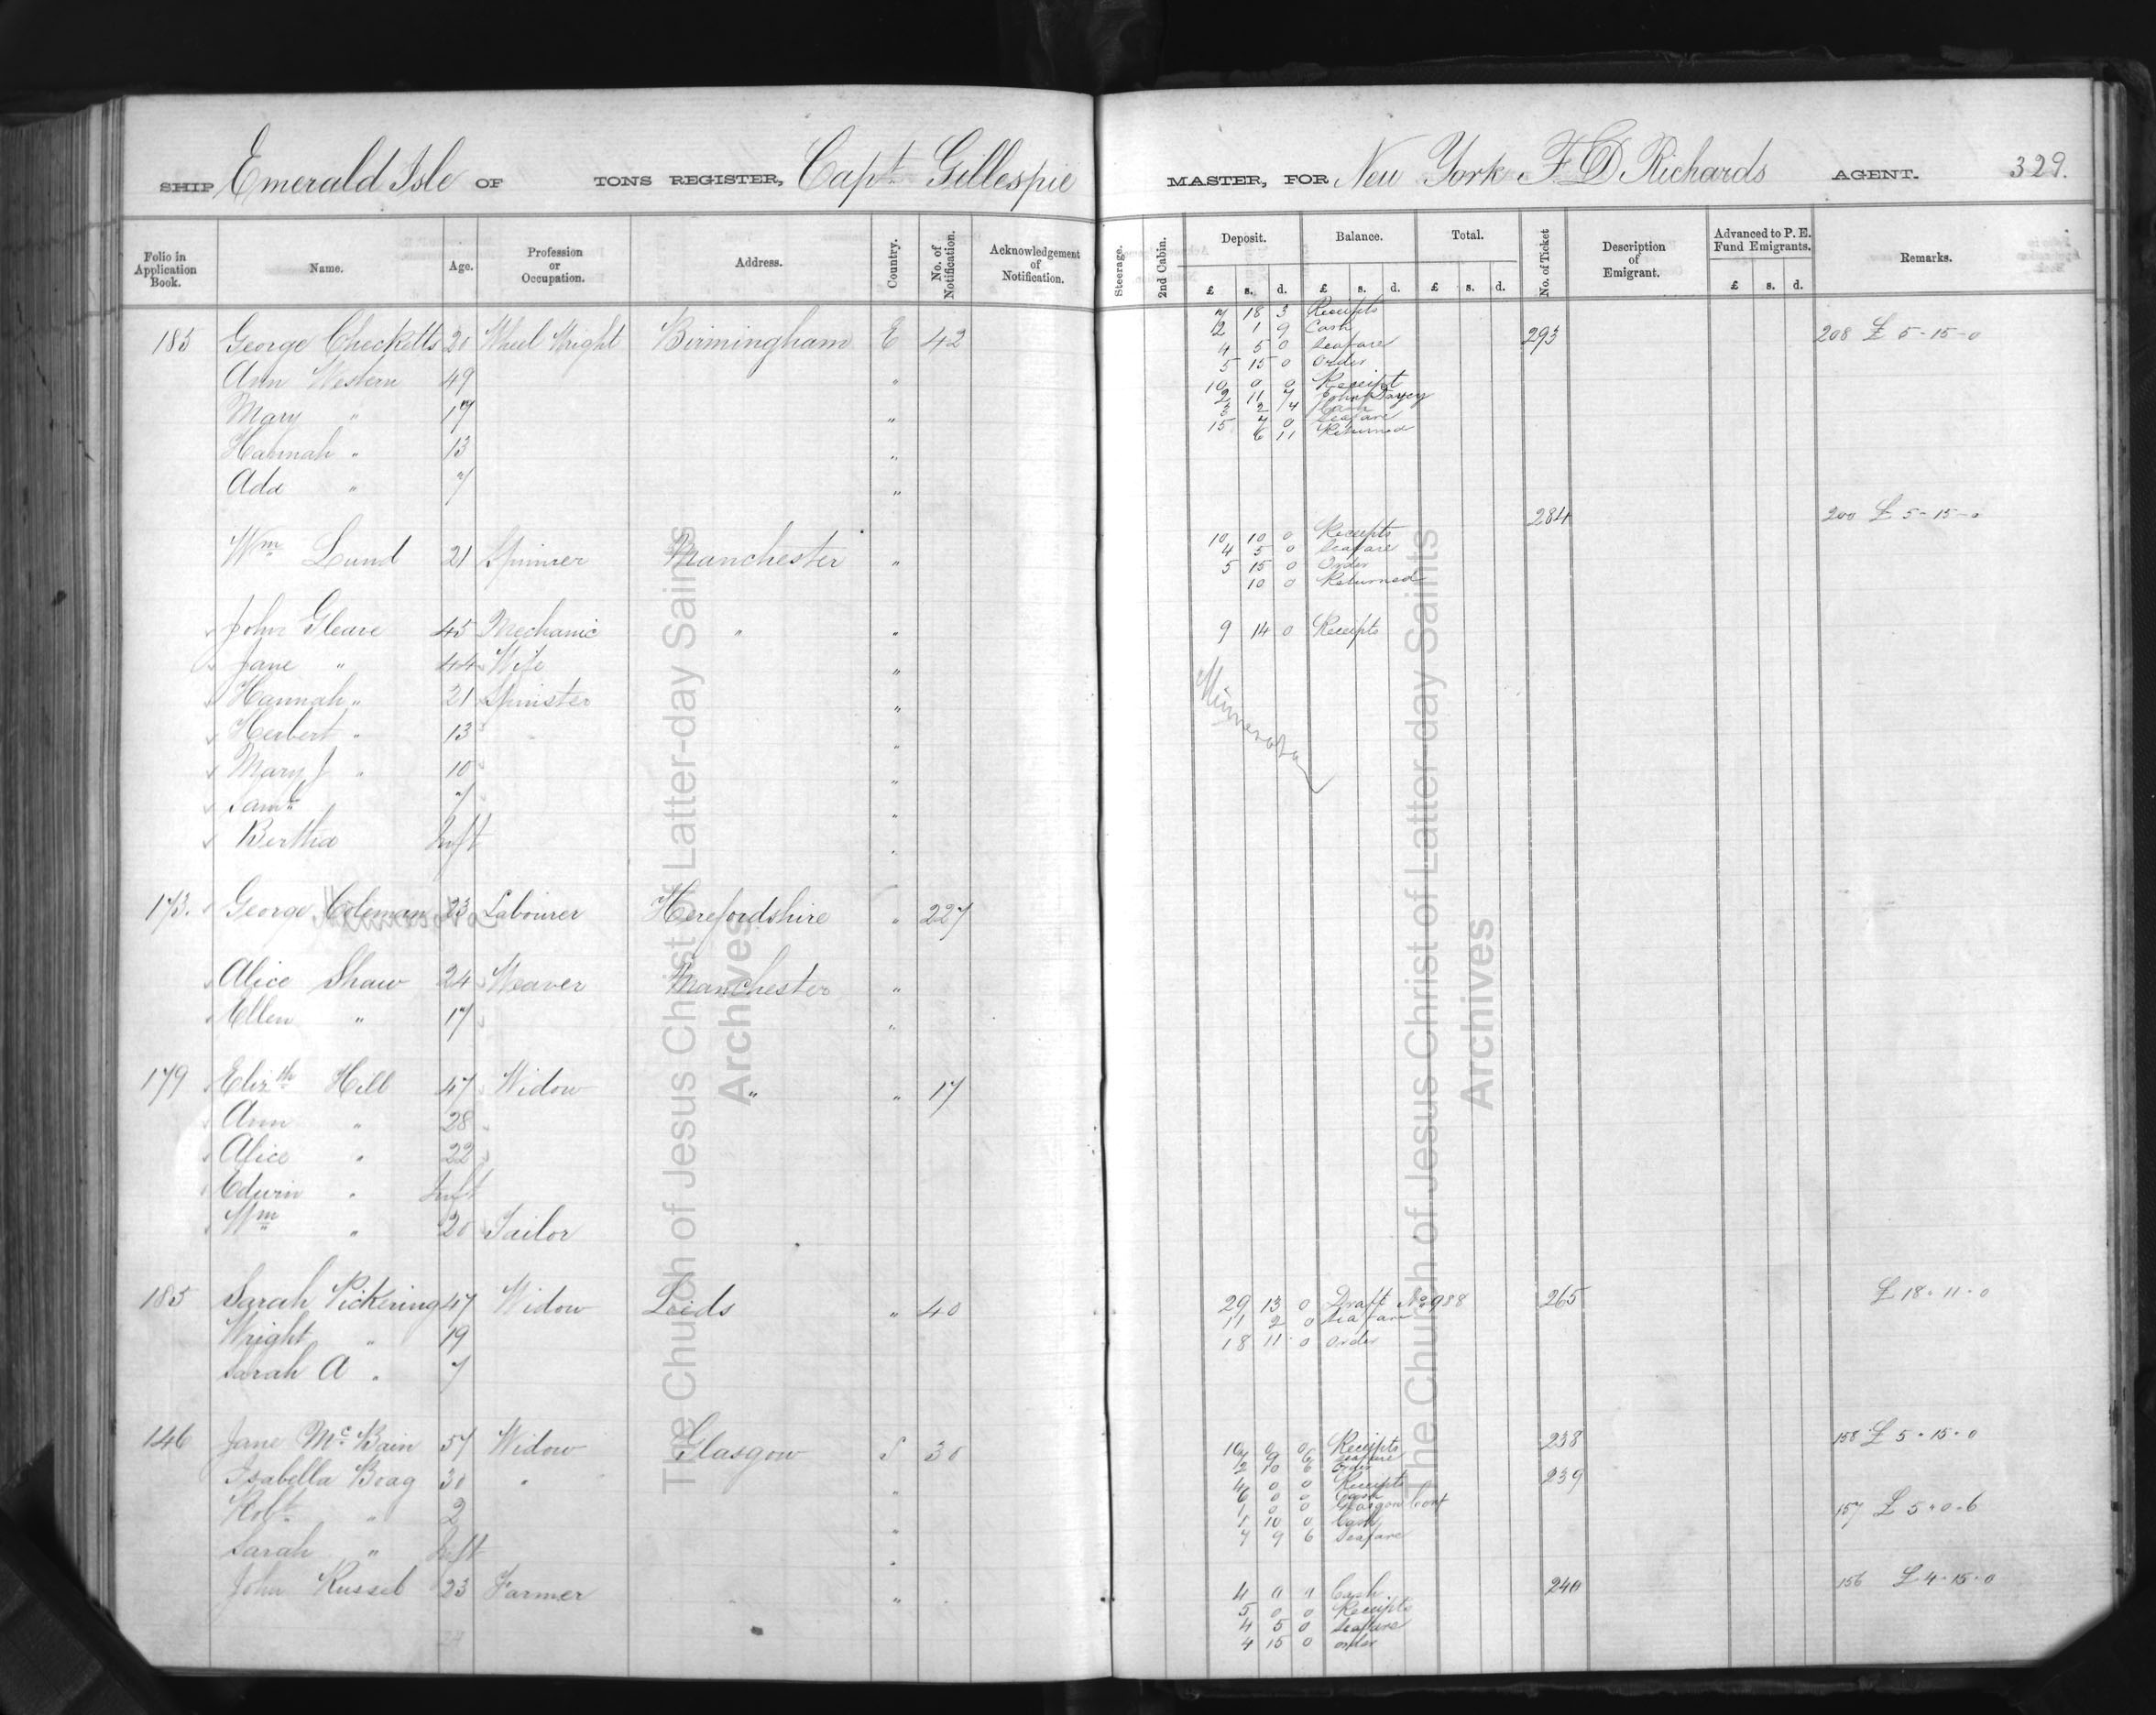 SHIP Emerald Isle OF TONS REGISTER, Capt Gillespie MASTER, FOR New York F D Richards AGENT. 329.
Folio in Application Book. Name. Age. Profession or Occupation. Address. Country. No. of Notification. Acknowledgement of Notification. Steerage. 2nd Cabin. Deposit. £ s. d. Balance. £ s. d. Total. £ s. d. No. of Ticket Description of Emigrant. Advanced to P. E. Fund Emigrants. £ s. d. Remarks.
7 18 3 Receipts
2 1 9 Cash
185 George Checketts 20 Wheel Wright Birmingham E 42 4 5 0 Seafare 293 208 £ 5-15-0
5 15 0 Order
Ann Western 49 " 10 0 0 Receipt
2 11 7
Mary " 17 " 3 2 4 Cash
15 7 0 Seafare
6 11 Returned
Hannah " 13 "
Ada " 7 "
284 200 £ 5-15-0
10 10 0 Receipts
Wm Lund 21 Spinner Manchester " 4 5 0 Seafare
5 15 0 Order
10 0 Returned
John Gleave 45 Mechanic " " 9 14 0 Receipts
Jane " 44 Wife "
Hannah " 21 Spinster "
Minnesota
Herbert " 13 "
Mary J " 10 "
Saml 7 "
Bertha Inft "
173. George Coleman 23 Labourer Herefordshire " 227
Alice Shaw 24 Weaver Manchester "
Ellen " 17 "
179 Elizth Hill 47 Widow " " 17
Ann " 28
Alice " 22
Edwin " Inft
Wm " 20 Tailor
185 Sarah Pickering 47 Widow Leeds " 40 29 13 0 Draft No 988 265 £ 18-11-0
11 2 0 Seafare
Wright " 19 18 11 0 order
Sarah A " 7
146 Jane Mc Bain 57 Widow Glasgow S 30 10 0 0 Receipts 238 158 £ 5-15-0
9 6 Seafare
2 10 6 Order
Isabella Boag 30 " " 4 0 0 Receipts 239
6 0 0 Cash
Robt " 2 " 1 0 0 Glasgow Conf 157 £ 5-0-6
1 10 0 Cash
Sarah " Inft " 7 9 6 Seafare
John Russel 23 Farmer " 4 0 0 Cash 240 156 £ 4-15-0
5 0 0 Receipts
4 5 0 Seafare
4 15 0 order
The Church of Jesus Christ of Latter-day Saints
Archives
The Church of Jesus Christ of Latter-day Saints
Archives